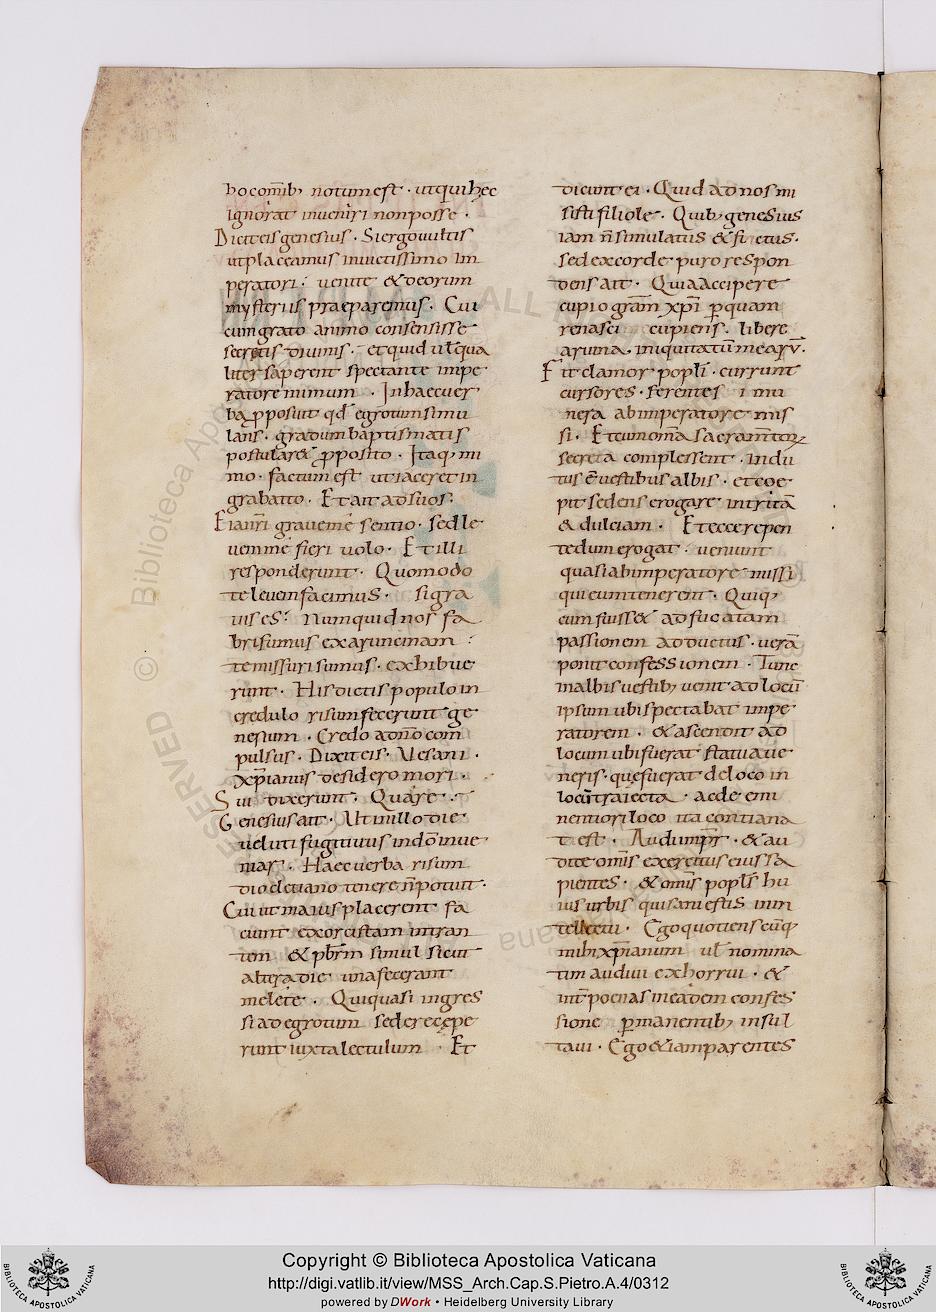 hoc om̄ib; notum est · ut qui hęc
ignorat inueniri non posse ·
Dicit eis genesius · Si ergo uultis
ut placeamus inuictissimo im
peratori · uenite & deorum
mysteriis praeparemus · Cui
cum grato animo consensisse
secretis diuinis · et quid ul̄ qua
liter saperent spectante impe
ratore mimum · In haec uer
ba p̱posuit qđ egrotum simu
lans · gradum baptismatis
postular& p̱posito · Itaq; mi
mo · factum est ut iaceret in
grabatto · Et ait ad suos ·
Eia nr̄i graue me sentio · sed le
uem me fieri uolo · Et illi
responderunt · Quomodo
te leuem facimus · si gra
uis es · Numquid nos fa
bri sumus ex aruncinam
te missuri sumus · exhibue
runt · His dictis populo in
credulo risum fecerunt ge
nesium · Credo a dn̄o com
pulsus · Dixit eis · Uesani ·
xp̄ianus desidero mori ·
Sui dixerunt · Quare ·
Genesius ait · Ut in illo die
ueluti fugitiuus in dō inue
niar · Haec uerba risum
diocletiano tenere n̄ potuit ·
Cui ut maius placerent fa
ciunt exorcistam intran
tem & pbr̄m simul sicut
altera die una fecerant
melete · Qui quasi ingres
si ad egrotum sedere cępe
runt iuxta lectulum · Et
dicunt ei · Quid ad nos mi
sisti filiole · Quib; genesius
iam n̄ simulatus & fictus ·
sed ex corde puro respon
dens ait · Quia accipere
cupio gr̄am xp̄i p̱ quam
renasci cupiens · liber&
a ruina iniquitatū mearū ·
Fit clamor popl̄i · currunt
cursores · ferentes i mu
nera ab imperatore mis
si · Et cum om̄a sacram̄torꝝ
secreta complessent · Indu
tus ē uestibus albis · et coe
pit sedens erogare intritā
& dulciam · Et ecce repen
te dum erogat · ueniunt
quasi ab imperatore missi
qui eum tenerent · Quiq;
cum fuiss& ad fucatam
passionem adductus · uerā
ponit confessionem · Tunc
in albis uestib; uenit ad locū
ipsum ubi spectabat impe
ratorem · & ascendit ad
locum ubi fuerat statua ue
neris · quę fuerat de loco in
locū traiecta · a ede emi
nentiori loco ita contiana
t est · Audi imp̄r · & au
dite om̄is exercitus eius sa
pientes · & om̄is popl̄s hu
ius urbis quisani estis in in
tellectu · Ego quotienscūq;
mihi xp̄ianum ul̄ nomina
tim audiui exhorrui · &
int̄ poenas in eadem confes
sione p̱manentib; insul
taui · Ego &iam parentes
Copyright © Biblioteca Apostolica Vaticana
http://digi.vatlib.it/view/MSS_Arch.Cap.S.Pietro.A.4/0312
powered by DWork • Heidelberg University Library
BIBLIOTECA APOSTOLICA VATICANA
BIBLIOTECA APOSTOLICA VATICANA